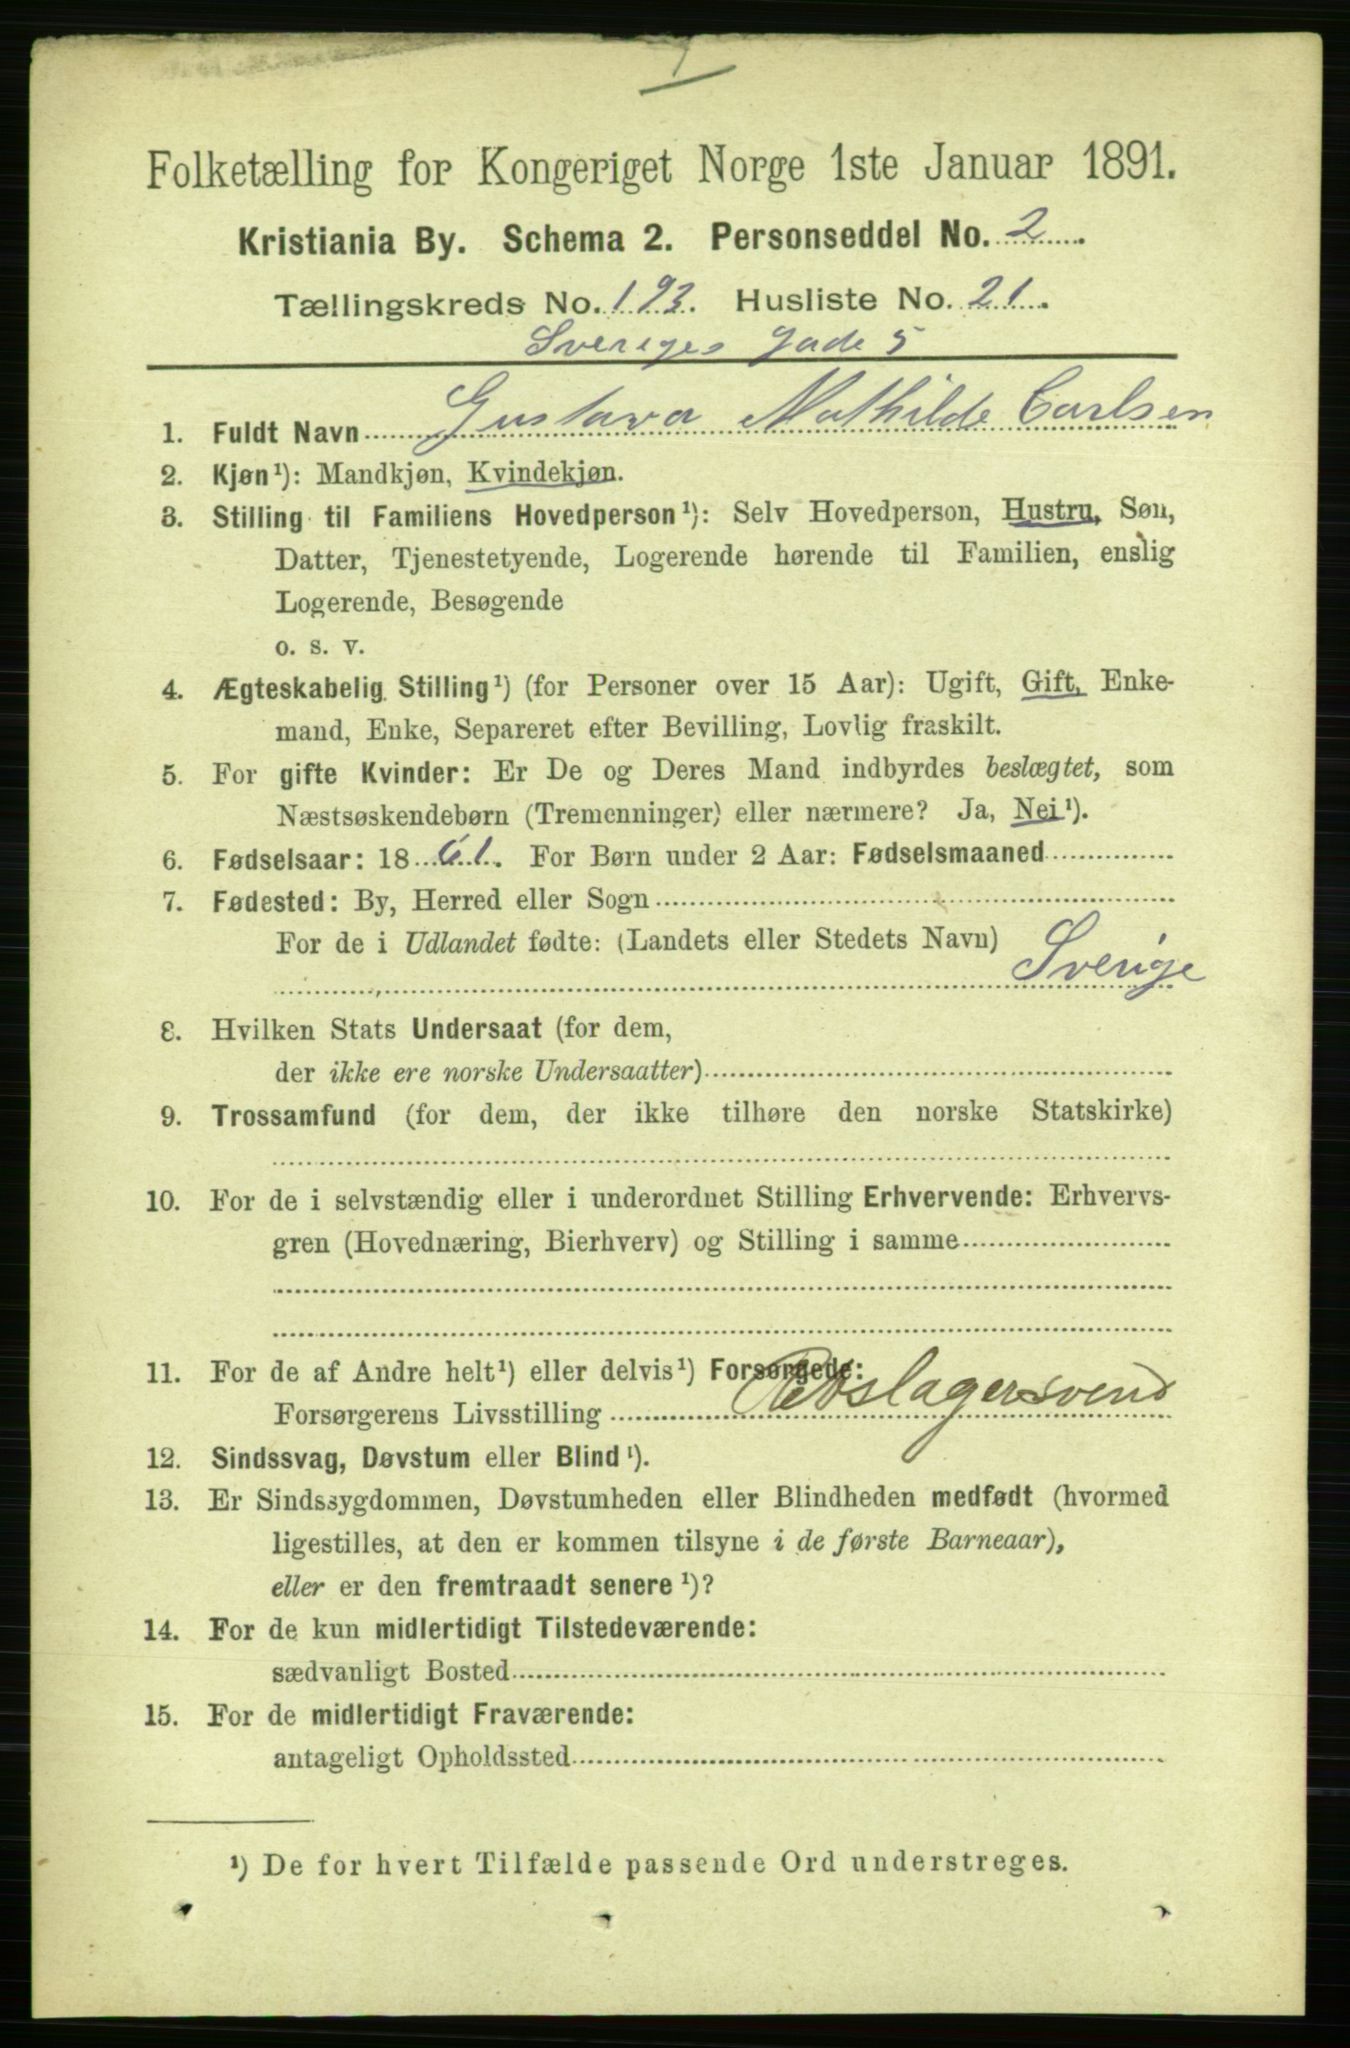 Folketælling for Kongeriget Norge 1ste Januar 1891.
Kristiania By. Schema 2. Personseddel No. 2
Tællingskreds No. 193. Husliste No. 21.
Sveriges gade 5
1. Fuldt Navn Gustava Mathilde Carlsen
2. Kjøn¹): Mandkjøn, Kvindekjøn.
3. Stilling til Familiens Hovedperson¹): Selv Hovedperson, Hustru, Søn,
Datter, Tjenestetyende, Logerende hørende til Familien, enslig
Logerende, Besøgende
o. s. v.
4. Ægteskabelig Stilling¹) (for Personer over 15 Aar): Ugift, Gift, Enke-
mand, Enke, Separeret efter Bevilling, Lovlig fraskilt.
5. For gifte Kvinder: Er De og Deres Mand indbyrdes beslægtet, som
Næstsøskendebørn (Tremenninger) eller nærmere? Ja, Nei¹).
6. Fødselsaar: 1861. For Børn under 2 Aar: Fødselsmaaned
7. Fødested: By, Herred eller Sogn
For de i Udlandet fødte: (Landets eller Stedets Navn)
Sverige
8. Hvilken Stats Undersaat (for dem,
der ikke ere norske Undersaatter)
9. Trossamfund (for dem, der ikke tilhøre den norske Statskirke)
10. For de i selvstændig eller i underordnet Stilling Erhvervende: Erhvervs-
gren (Hovednæring, Bierhverv) og Stilling i samme
11. For de af Andre helt¹) eller delvis¹) Forsørgede:
Forsørgerens Livsstilling Rebslagersvend
12. Sindssvag, Døvstum eller Blind¹).
13. Er Sindssygdommen, Døvstumheden eller Blindheden medfødt (hvormed
ligestilles, at den er kommen tilsyne i de første Barneaar),
eller er den fremtraadt senere¹)?
14. For de kun midlertidigt Tilstedeværende:
sædvanligt Bosted
15. For de midlertidigt Fraværende:
antageligt Opholdssted
¹) De for hvert Tilfælde passende Ord understreges.